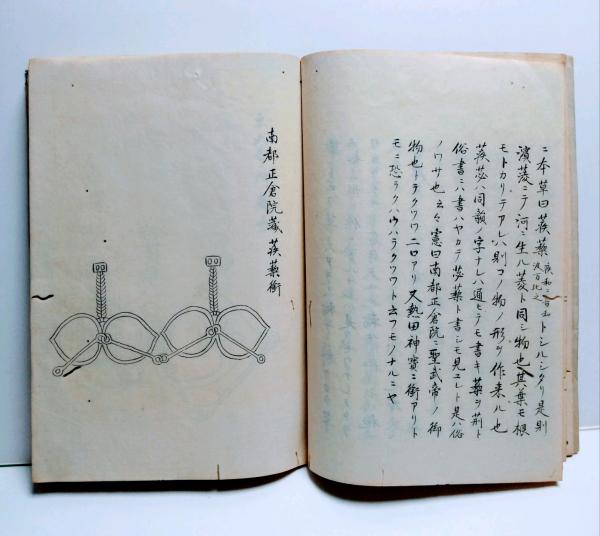 ニ本草曰蒺藜 和名 トシルシタリ是則
濱菱ニテ河ニ生ル菱ト同シ物也其葉モ根
モトカリテアレハ則コノ物ノ形ヲ作来ル也
蒺苾ハ同韻ノ字ナレハ通ヒテモ書キ藜ヲ荊ト
俗書ニハ書ハヤカラ苾藜ト書シモ見エレト是ハ俗
ノワサ也云々憲曰南都正倉院ニ聖武帝ノ御
物也トテクツワ二口アリ又熱田神寳ニ銜アリト
モニ恐ラクハウハラクツワト云フモノナルニヤ
南都正倉院蔵蒺藜銜